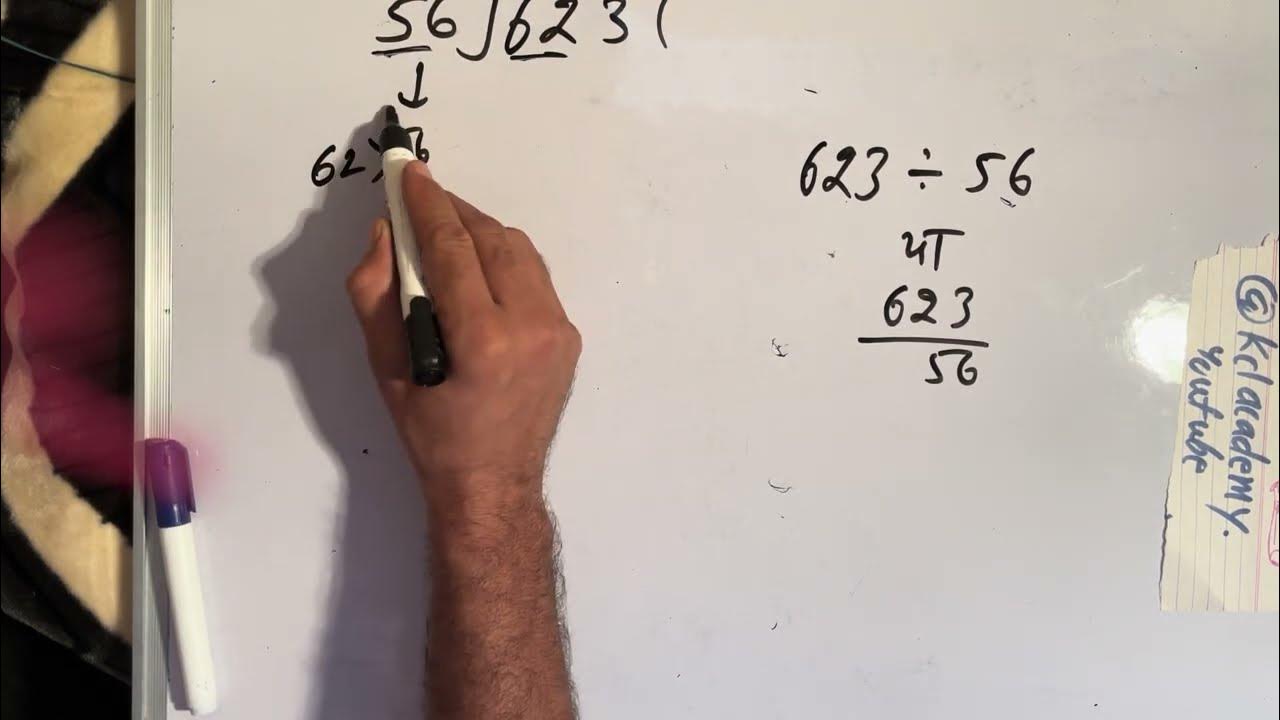 56)623(
62>56
623 ÷ 56
या
623
56
@kclacademy.
Youtube